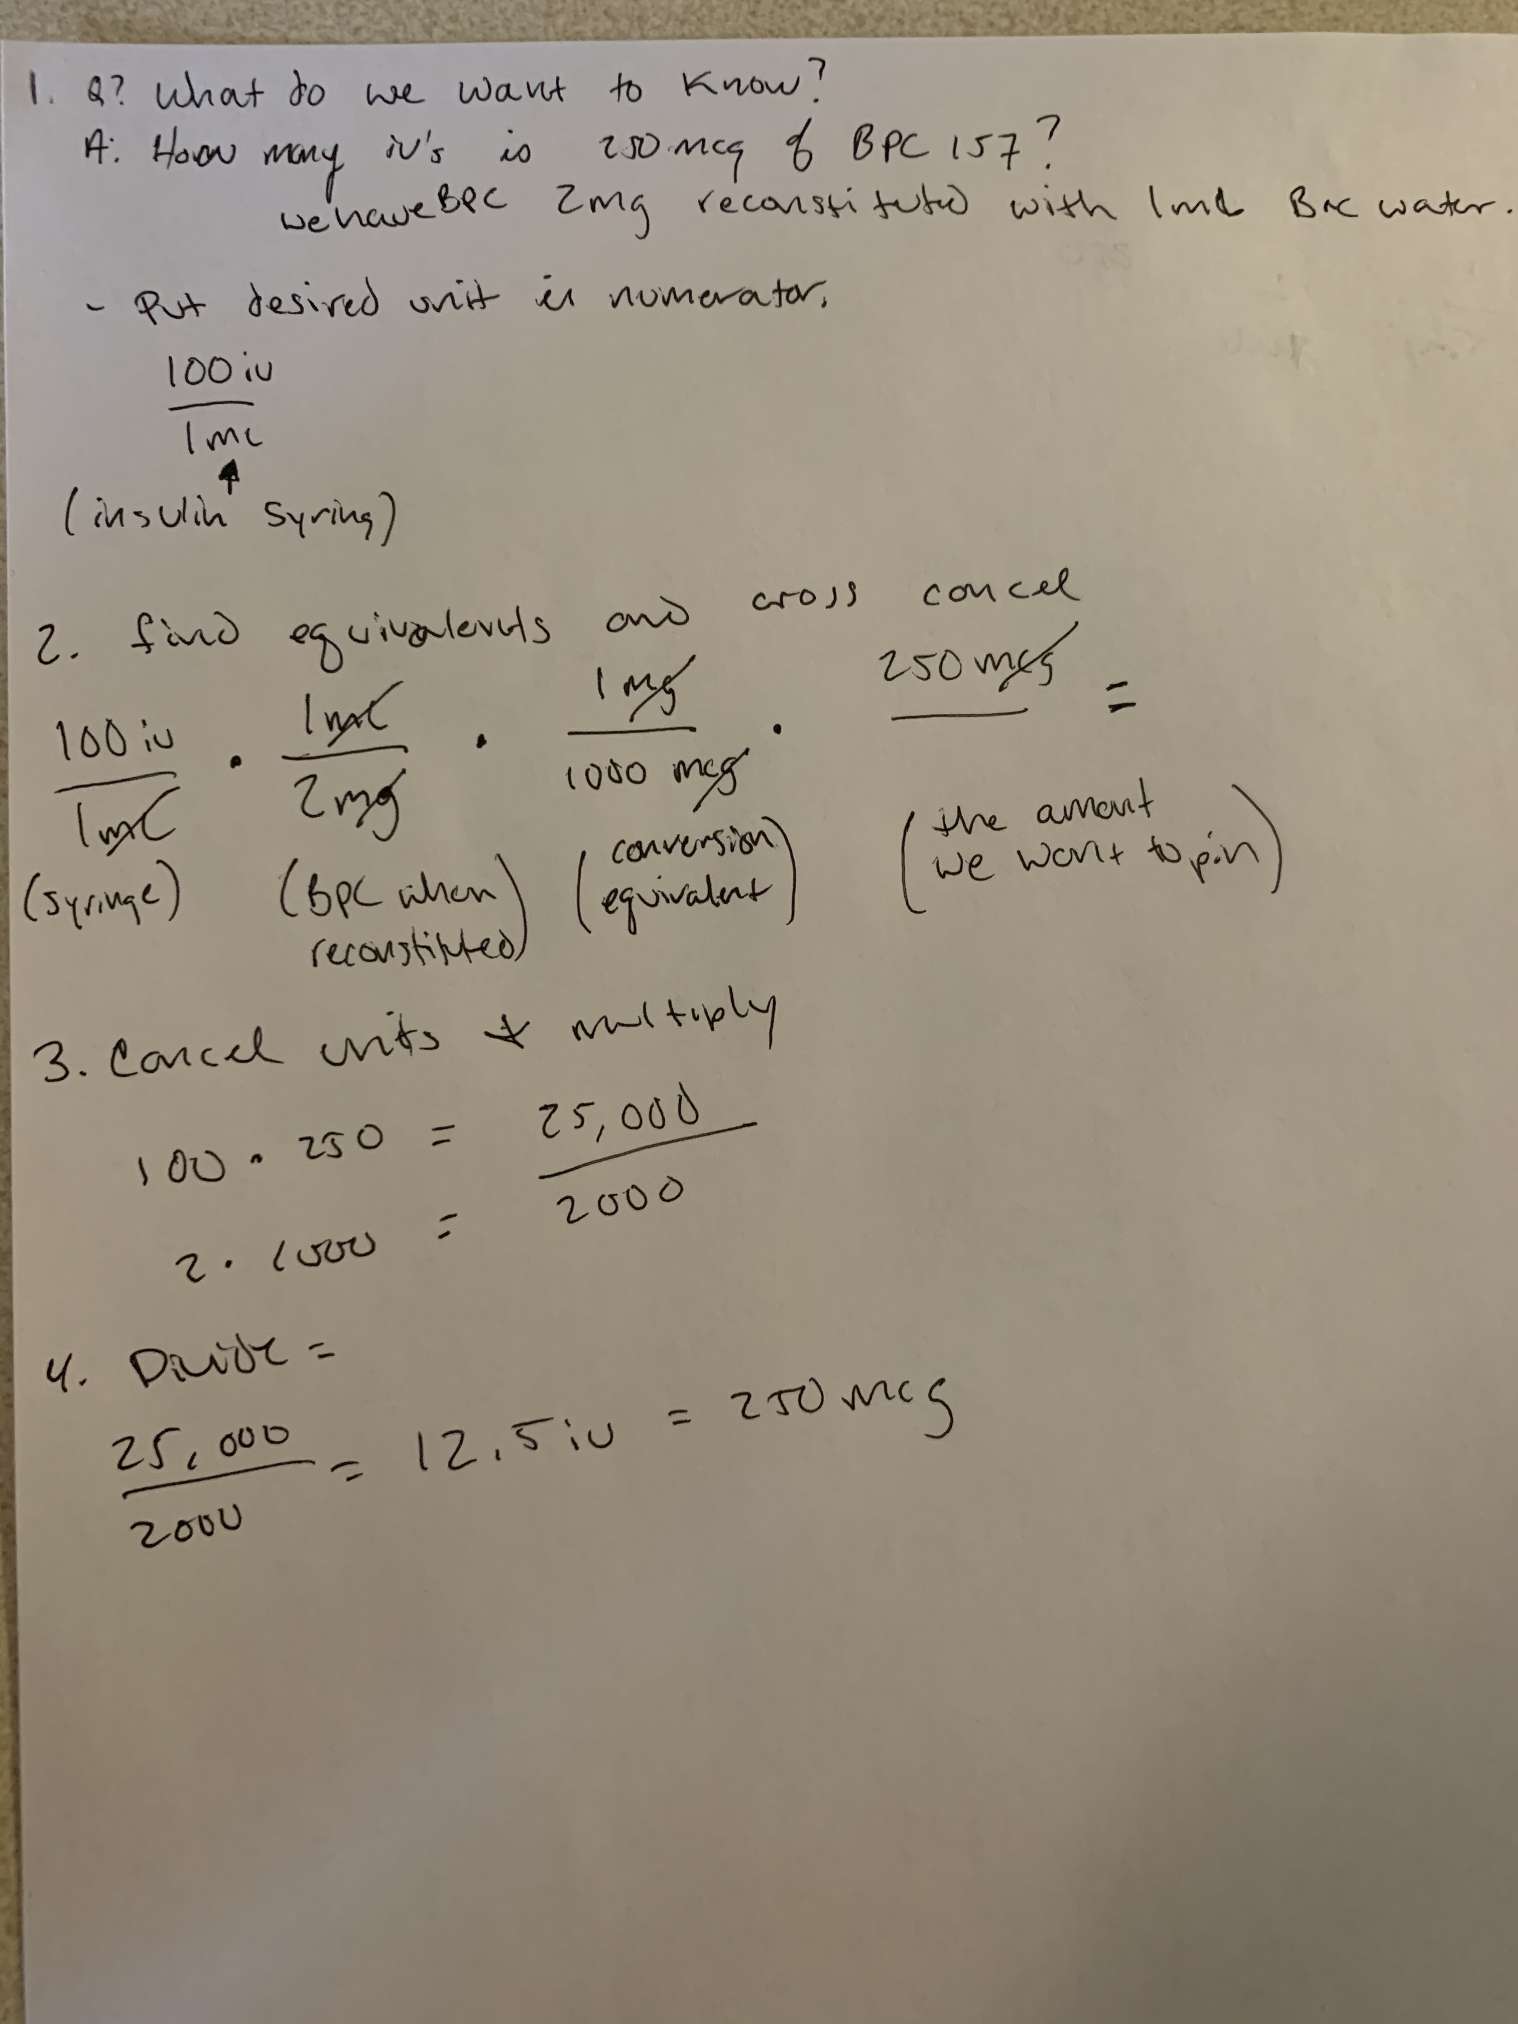 1. Q? What do we want to Know?
A: How many iu's is 250 mcg of BPC 157?
we have BPC 2mg reconstituted with 1mL Bac water.
- Put desired unit in numerator.
100 iu
1mL
(insulin syring)
2. find equivalents and cross cancel
100 iu · 1mL · 1 mg · 250 mcg =
1mL 2mg 1000 mcg
(syringe) (BPC when reconstituted) (conversion equivalent) (the amount we want to pin)
3. Cancel units & multiply
100 · 250 = 25,000
2 · 1000 = 2000
4. Divide =
25,000 = 12.5 iu = 250 mcg
2000